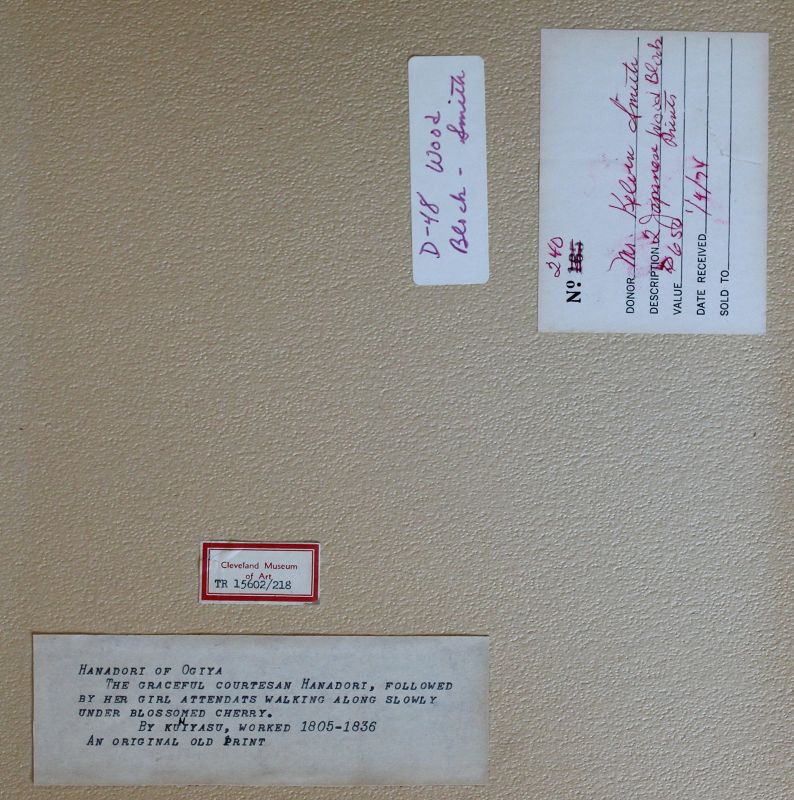 D-48 Wood
Block - Smith
240
Nº 185
DONOR Mr. Kelvin Smith
DESCRIPTION 2 Japanese Wood Block
Prints
VALUE $650
DATE RECEIVED 1/4/74
SOLD TO
Cleveland Museum
of Art
TR 15602/218
HANADORI OF OGIYA
THE GRACEFUL COURTESAN HANADORI, FOLLOWED
BY HER GIRL ATTENDATS WALKING ALONG SLOWLY
UNDER BLOSSOMED CHERRY.
BY KUNIYASU, WORKED 1805-1836
AN ORIGINAL OLD PRINT